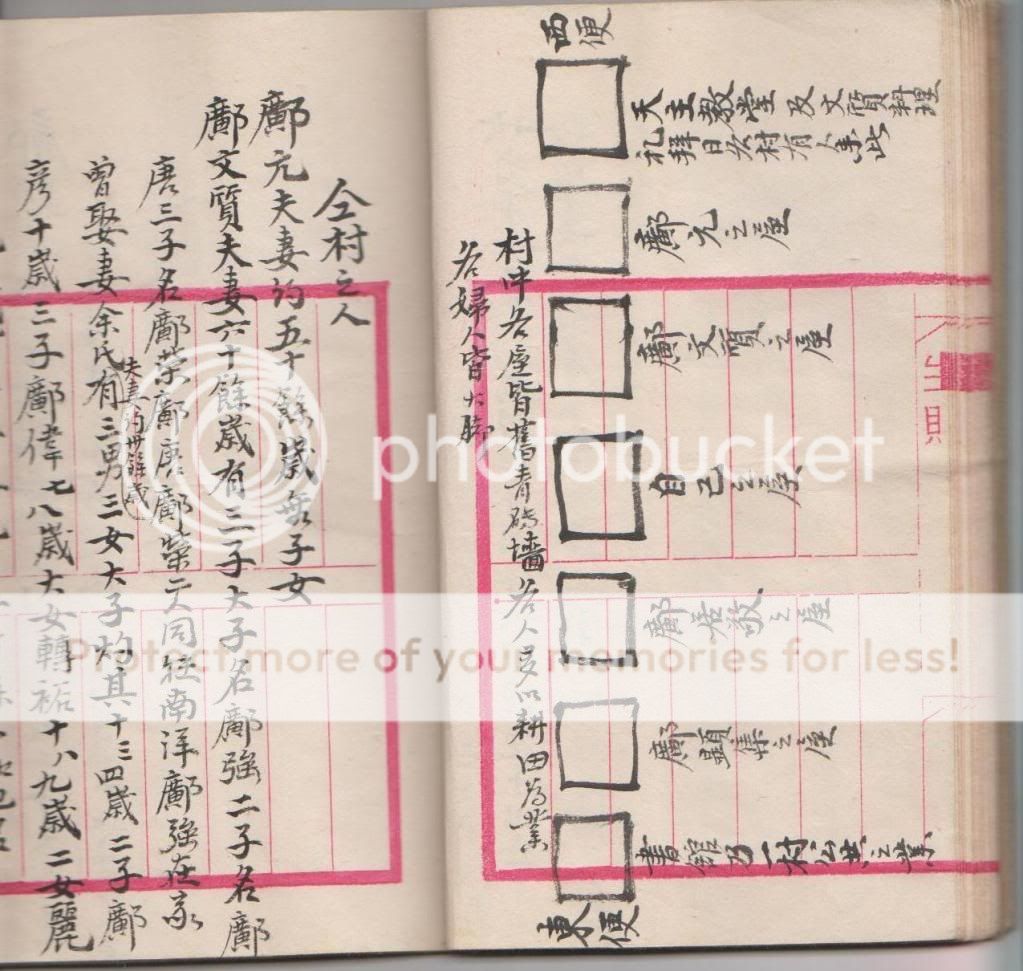 西便
天主教堂及文質料理
礼拜日各村有人集此
鄺元之屋
鄺文質之屋
自己之屋
鄺居敬之屋
鄺顕集之屋
書館乃一村公共之業
東便
村中各屋皆舊青磚墻各人多以耕田為業
各婦人皆大脚
仝村之人
鄺元夫妻約五十餘歲無子女
鄺文質夫妻六十餘歲有三子大子名鄺強二子名鄺
唐三子名鄺榮鄺唐鄺榮二人同往南洋鄺強在家
曾娶妻余氏有三男三女大子灼其十三四歲二子鄺
夫妻約卅餘歲
彥十歲三子鄺偉七八歲大女轉裕十八九歲二女麗
photobucket
Protect more of your memories for less!